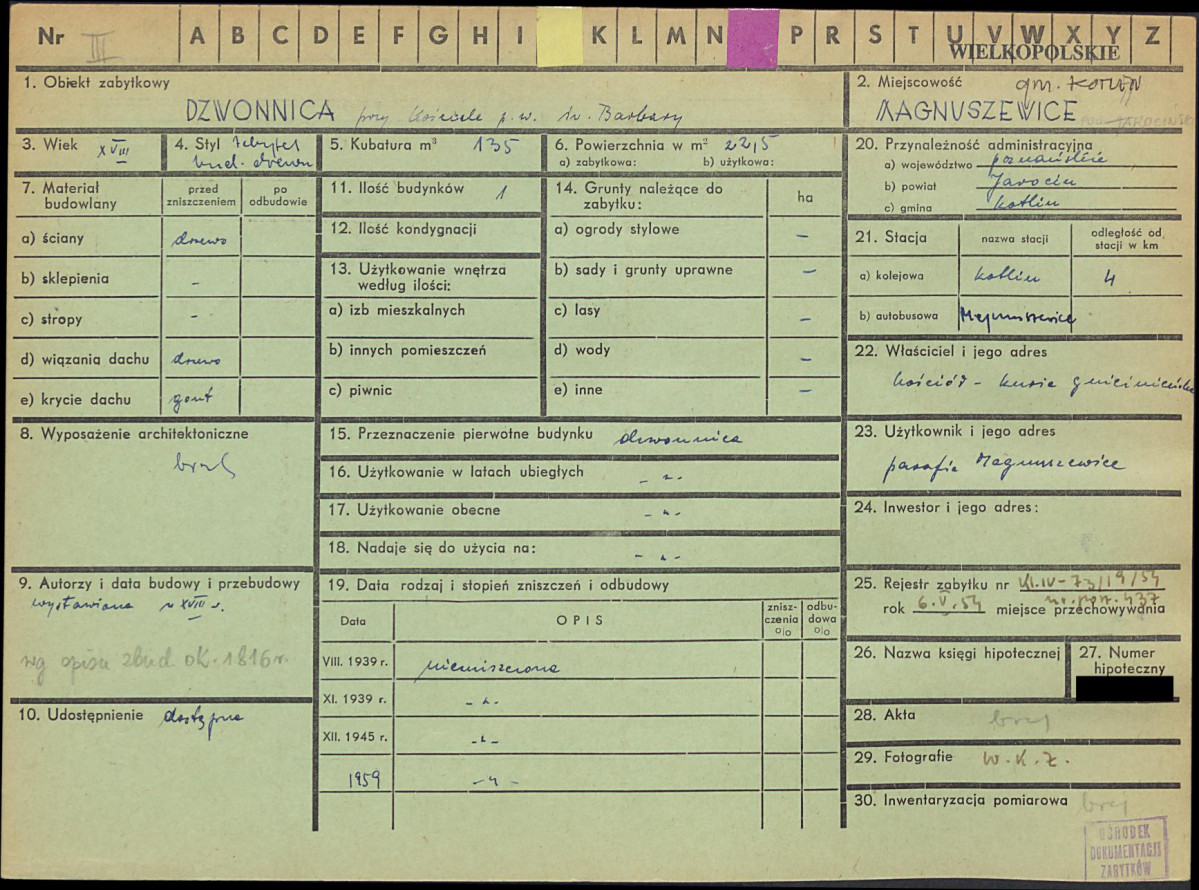 Nr III A B C D E F G H I K L M N P R S T U V W X Y Z
WIELKOPOLSKIE
1. Obiekt zabytkowy
DZWONNICA przy kościele p.w. św. Barbary
2. Miejscowość gm. Kotlin
MAGNUSZEWICE
POW. JAROCIŃSKI
3. Wiek XVIII
4. Styl zabytek
bud. drewn
5. Kubatura m³ 135
6. Powierzchnia w m² 22,5
a) zabytkowa: b) użytkowa:
20. Przynależność administracyjna
a) województwo poznańskie
b) powiat Jarocin
c) gmina Kotlin
7. Materiał budowlany
przed zniszczeniem
po odbudowie
a) ściany drewno
b) sklepienia –
c) stropy –
d) wiązania dachu drewno
e) krycie dachu gont
11. Ilość budynków 1
12. Ilość kondygnacji
13. Użytkowanie wnętrza
według ilości:
a) izb mieszkalnych
b) innych pomieszczeń
c) piwnic
14. Grunty należące do
zabytku:
ha
a) ogrody stylowe –
b) sady i grunty uprawne –
c) lasy –
d) wody –
e) inne –
21. Stacja
nazwa stacji
odległość od
stacji w km
a) kolejowa Kotlin 4
b) autobusowa Magnuszewice
22. Właściciel i jego adres
kościół – kuria gnieźnieńska
8. Wyposażenie architektoniczne
brak
15. Przeznaczenie pierwotne budynku dzwonnica
16. Użytkowanie w latach ubiegłych - " -
17. Użytkowanie obecne - " -
18. Nadaje się do użycia na: - " -
23. Użytkownik i jego adres
parafia Magnuszewice
24. Inwestor i jego adres:
9. Autorzy i data budowy i przebudowy
wystawiona w XVIII w.
wg opisu zbud. ok. 1816 r.
10. Udostępnienie dostępna
19. Data rodzaj i stopień zniszczeń i odbudowy
Data
OPIS
znisz-
czenia
o|o
odbu-
dowa
o|o
VIII. 1939 r. niezniszczona
XI. 1939 r. - " -
XII. 1945 r. - " -
1959 - " -
25. Rejestr zabytku nr Kl.IV-73/19/54
nr. poz. 437
rok 6.V.54 miejsce przechowywania
26. Nazwa księgi hipotecznej
27. Numer
hipoteczny
28. Akta brak
29. Fotografie W.K.Z.
30. Inwentaryzacja pomiarowa brak
OŚRODEK
DOKUMENTACJI
ZABYTKÓW